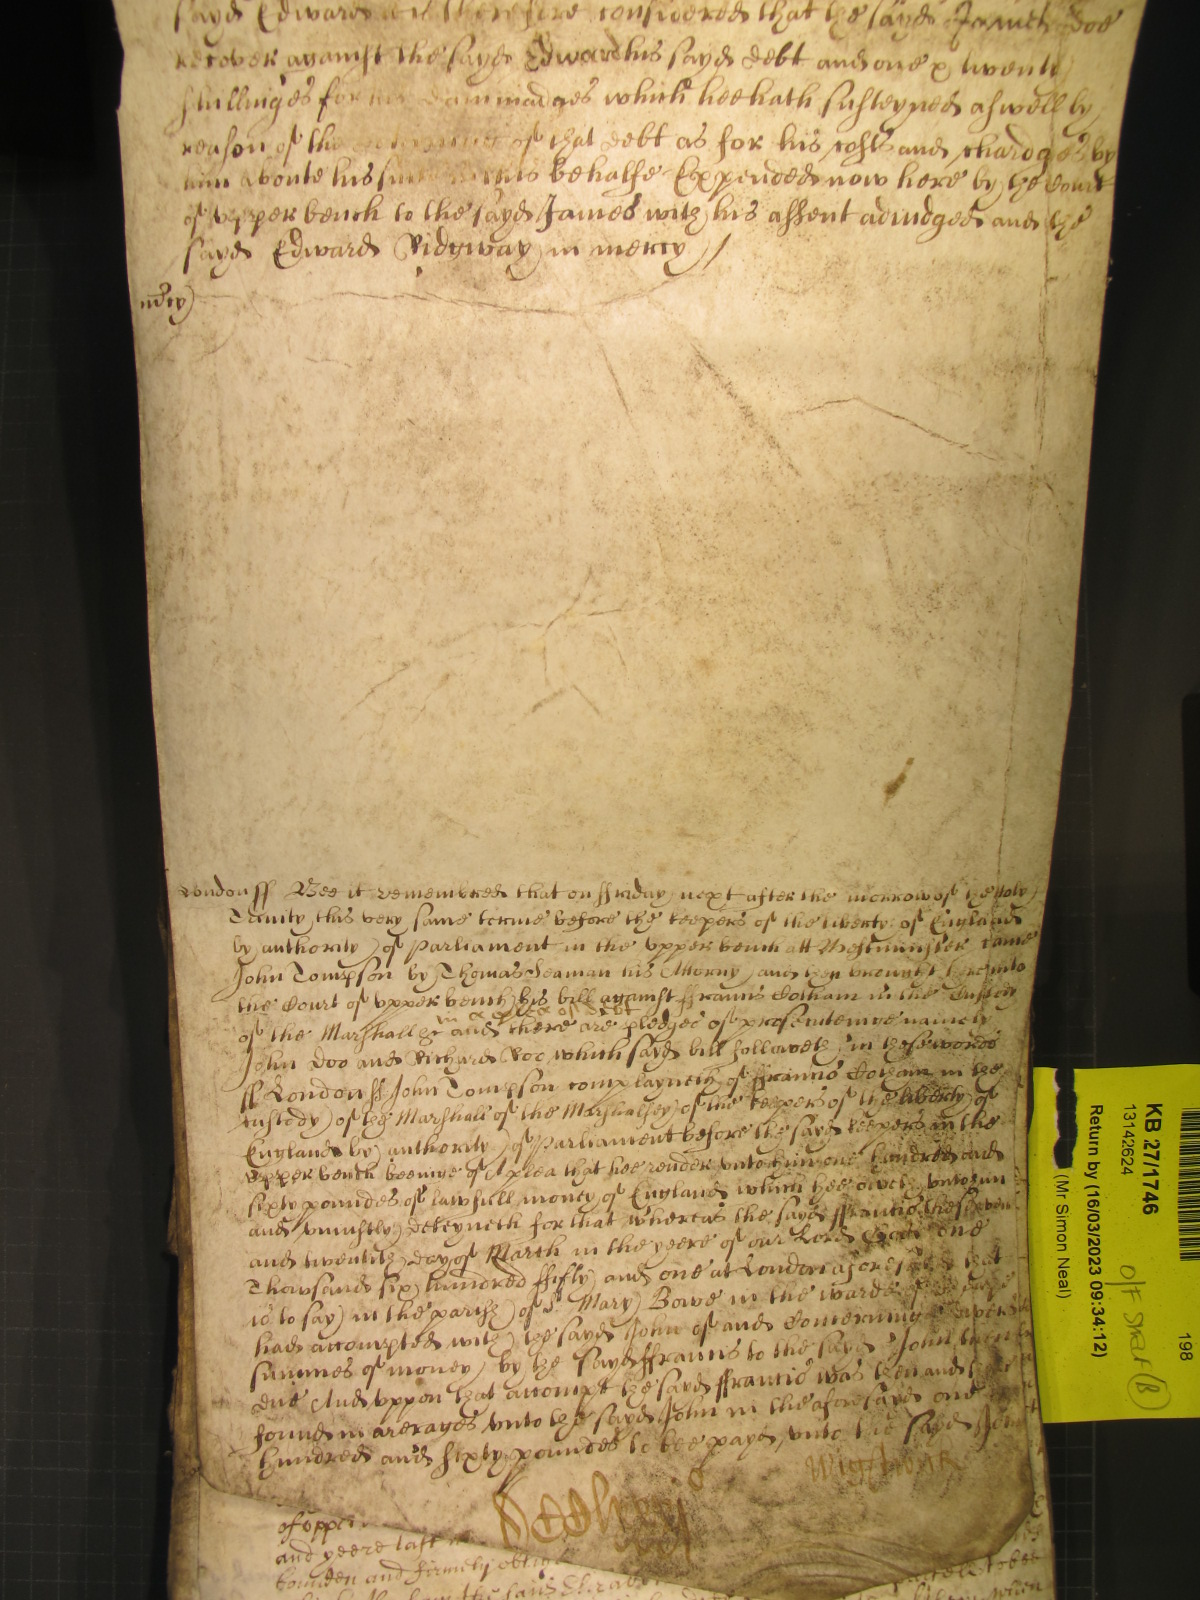 sayd Edward it is therefore considered that the sayd James Doe
recover against the sayd Edward his sayd debt and one & twenty
shillinges for his dammadges which hee hath susteyned aswell by
reason of the deteyning of that debt as for his costs and chardges by
him aboute his suit in this behalfe Expended now here by the Court
of vpper bench to the sayd James with his assent adiudged and the
sayd Edward Ridgway in mercy /
mercy
London ss Bee it remembred that on ffriday next after the morrow of the holy
Trinity this very same terme before the keepers of the liberty of England
by authority of Parliament in the vpper bench att Westminster came
John Tompson by Thomas Seaman his Attorny and then brought here into
the Court of vpper bench his bill against ffrancis Cotham in the Custody
in a plea of debt
of the Marshall &c and there are pledges of prosecuteinge namely
John Doo and Richard Roo which sayd bill followeth in these wordes
ss London ss John Tompson complayneth of ffrancis Cotham in the
custody of the Marshall of the Marshalsey of the keepers of the liberty of
England by authority of Parliament before the sayd keepers in the
vpper bench beeinge of A plea that hee render vnto him one hundred and
sixty poundes of lawfull money of England which hee oweth vnto him
and vniustly deteyneth for that whereas the sayd ffrancis the
and twentith day of March in the yeere of our Lord God one
Thousand six hundred ffifty and one at London aforesayd that
is to say in the parish of St Mary Bowe in the warde of
had accompted with the sayd John of and concerning divers
summes of money by the sayd ffrancis to the sayd John
due And vppon that accompt the sayd ffrancis was then and there
found in arerages vnto the sayd John in the aforsayd one
hundred and sixty poundes to bee payd vnto the sayd John
of vpper
and yeere last
bounden and firmely
the sayd
KB 27/1746
13142624
(Mr Simon Neal)
Return by (16/03/2023 09:34:12)
198